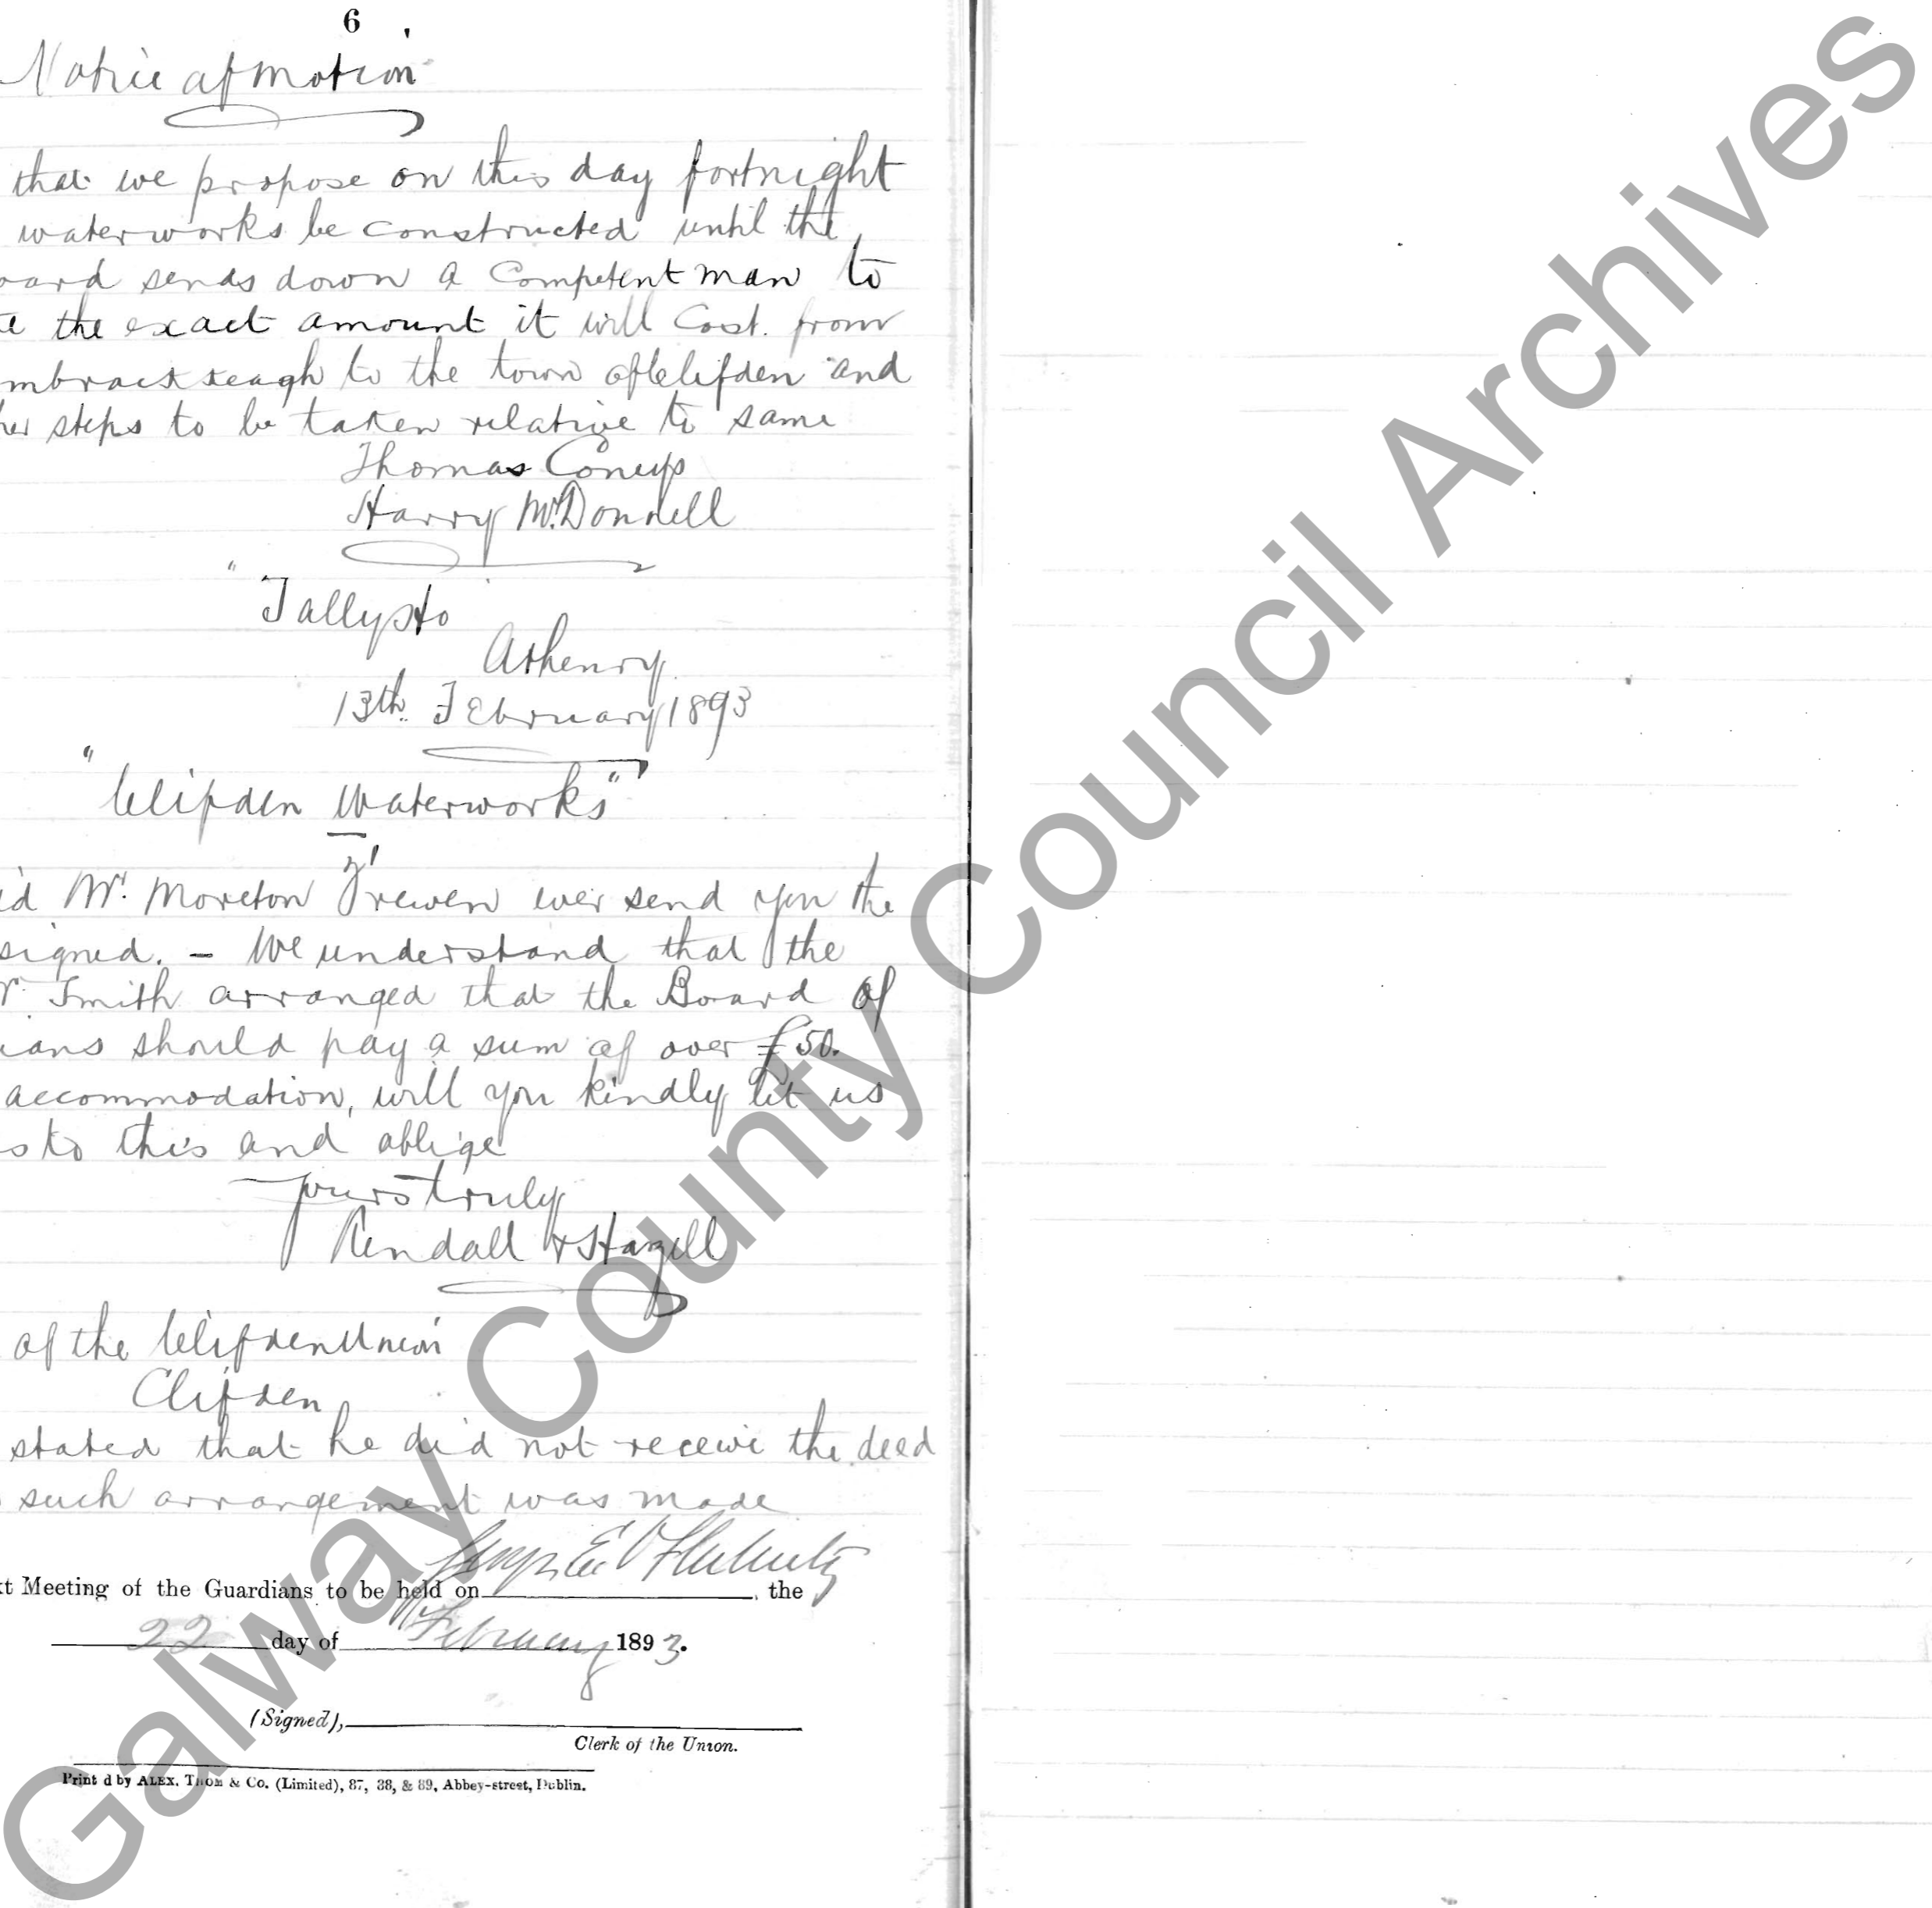 6
Notice of motion
that we propose on this day fortnight
waterworks be constructed until the
oard sends down a Competent man to
te the exact amount it will Cost. from
to the town of Clifden and
her steps to be taken relative to same
Thomas Coneys
Harry McDonnell
"Tallyho
Athenry
13th. February 1893
"Clifden Waterworks"
id Mr. Moreton Frewen ever send you the
signed. - We understand that the
r. Smith arranged that the Board of
ians should pay a sum of over £50.
accommodation, will you kindly let us
s to this and oblige
Yours truly
Kendall & Hazell
of the Clifden Union
Clifden
stated that he did not receive the deed
such arrangement was made
xt Meeting of the Guardians to be held on , the
22 day of February 1893.
(Signed),
Clerk of the Union.
Print d by ALEX. THOM & Co. (Limited), 87, 38, & 89, Abbey-street, Dublin.
Galway County Council Archives